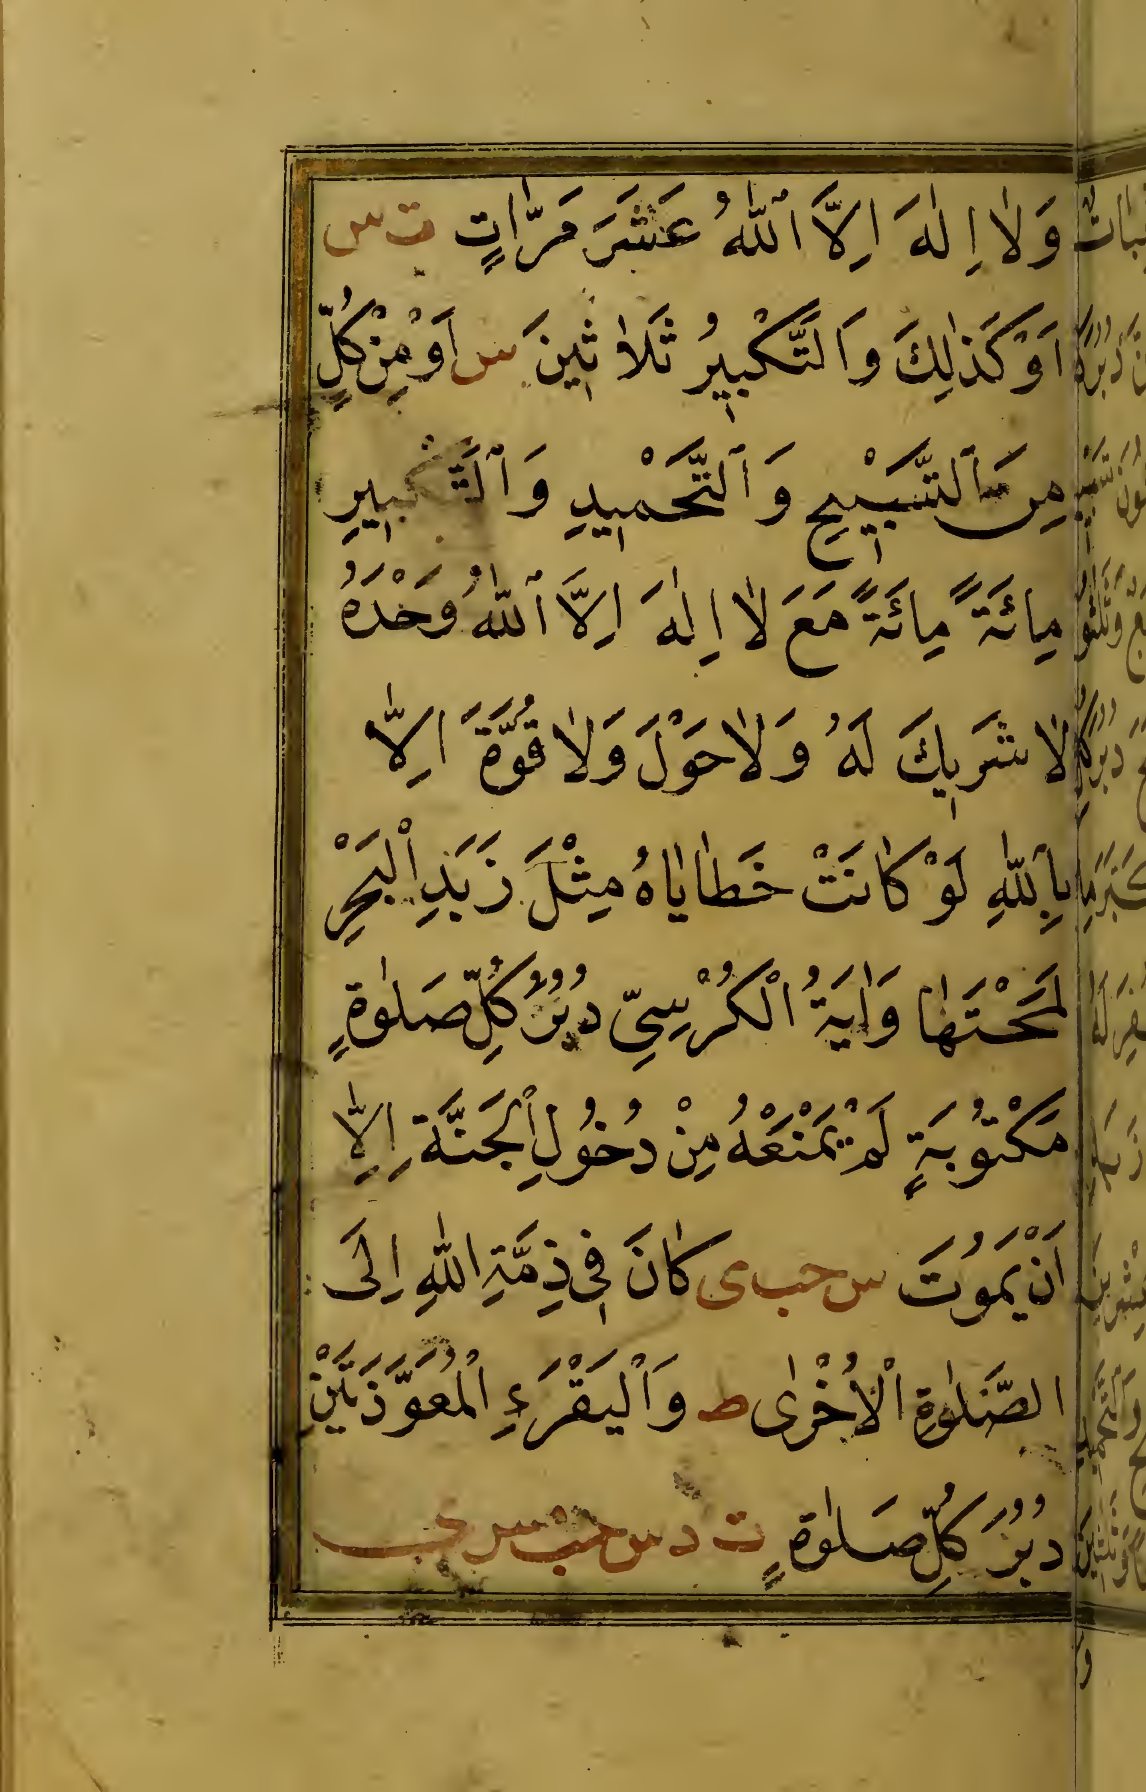 وَلَا اِلٰهَ اِلَّا ٱللّٰهُ عَشَرَ مَرَّاتٍ ت س
اَوْ كَذٰلِكَ وَالتَّكْبِيرُ ثَلَاثِينَ س اَوْ مِنْ كُلٍّ
مِنَ ٱلتَّسْبِيْحِ وَٱلتَّحْمِيدِ وَٱلتَّكْبِيرِ
مِائَةً مِائَةً مَعَ لَا اِلٰهَ اِلَّا ٱللّٰهُ وَحْدَهُ
لَا شَرِيكَ لَهُ وَلَا حَوْلَ وَلَا قُوَّةَ اِلَّا
بِاللّٰهِ لَوْ كَانَتْ خَطَايَاهُ مِثْلَ زَبَدِ الْبَحْرِ
لَمَحَتْهَا وَاٰيَةُ الْكُرْسِيِّ دُبُرَ كُلِّ صَلٰوةٍ
مَكْتُوبَةٍ لَمْ يَمْنَعْهُ مِنْ دُخُولِ الْجَنَّةِ اِلَّا
اَنْ يَمُوْتَ س حب ى كَانَ فِي ذِمَّةِ اللّٰهِ اِلَى
الصَّلٰوةِ الْاُخْرٰى ط وَالْيَقْرَءِ الْمُعَوَّذَتَيْنِ
دُبُرَ كُلِّ صَلٰوةٍ ت د س حب مس ى